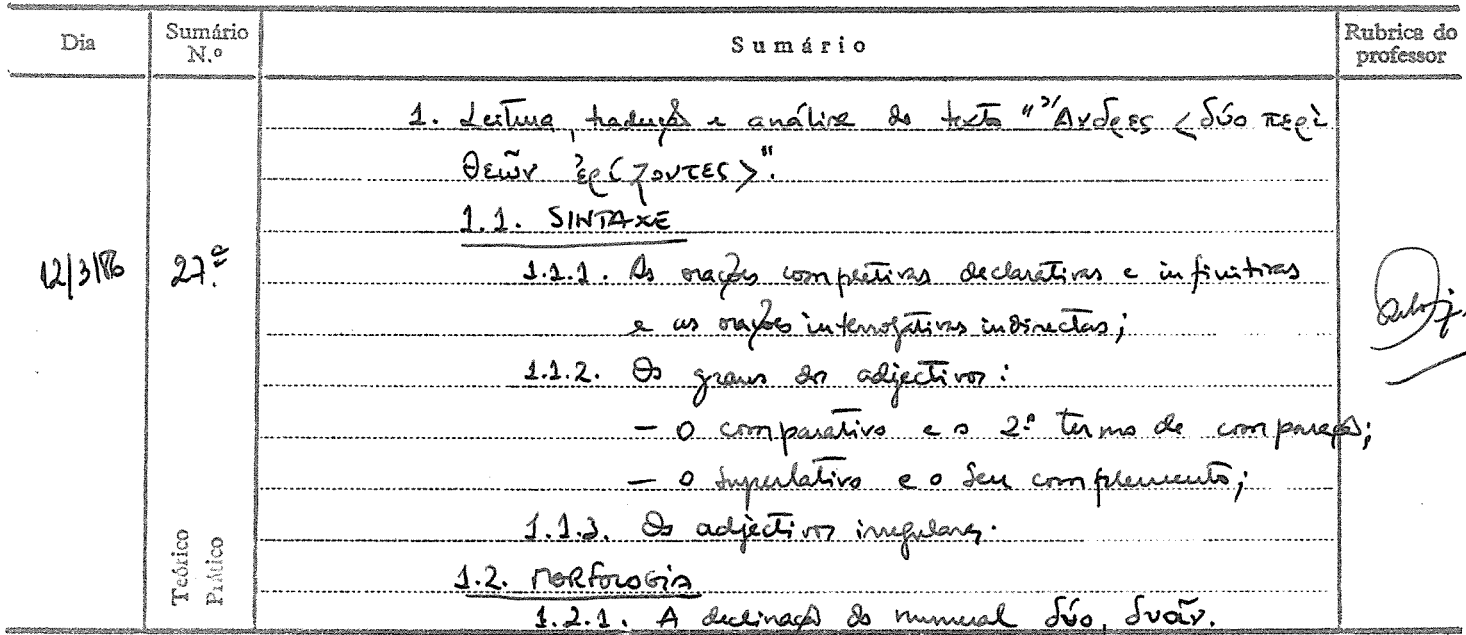 Dia
Sumário N.º
Sumário
Rubrica do professor
1. Leitura, tradução e análise do texto "Ἄνδρες <δύο περὶ
θεῶν ἐρίζοντες>".
1.1. SINTAXE
12/3/86 27.ª 1.1.1. As orações completivas declarativas e infinitivas
e as orações interrogativas indirectas;
1.1.2. Os graus dos adjectivos:
- o comparativo e o 2.º termo de comparação;
- o superlativo e o seu complemento;
1.1.3. Os adjectivos irregulares.
Teórico
Prático
1.2. MORFOLOGIA
1.2.1. A declinação do numeral δύο, δυοῖν.